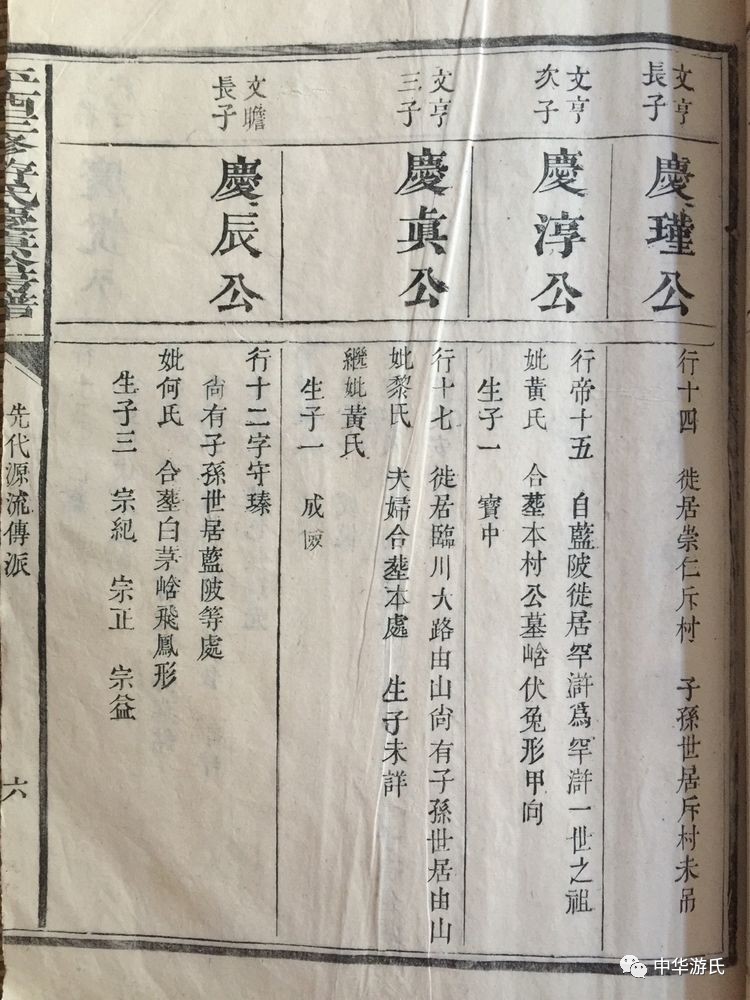 文亨
長子
慶瑾公
行十四 徙居崇仁斥村 子孫世居斥村未吊
文亨
次子
慶淳公
行帝十五 自藍陂徙居罕滸爲罕滸一世之祖
妣黃氏 合塟本村公墓峆伏兔形甲向
生子一 寶中
文亨
三子
慶眞公
行十七 徙居臨川大路由山尙有子孫世居由山
妣黎氏 夫婦合塟本處 生子未詳
繼妣黃氏
生子一 成
文瞻
長子
慶辰公
行十二字守瑧
尙有子孫世居藍陂等處
妣何氏 合塟白茅峆飛鳳形
生子三 宗紀 宗正 宗益
先代源流傳派
六
中华游氏